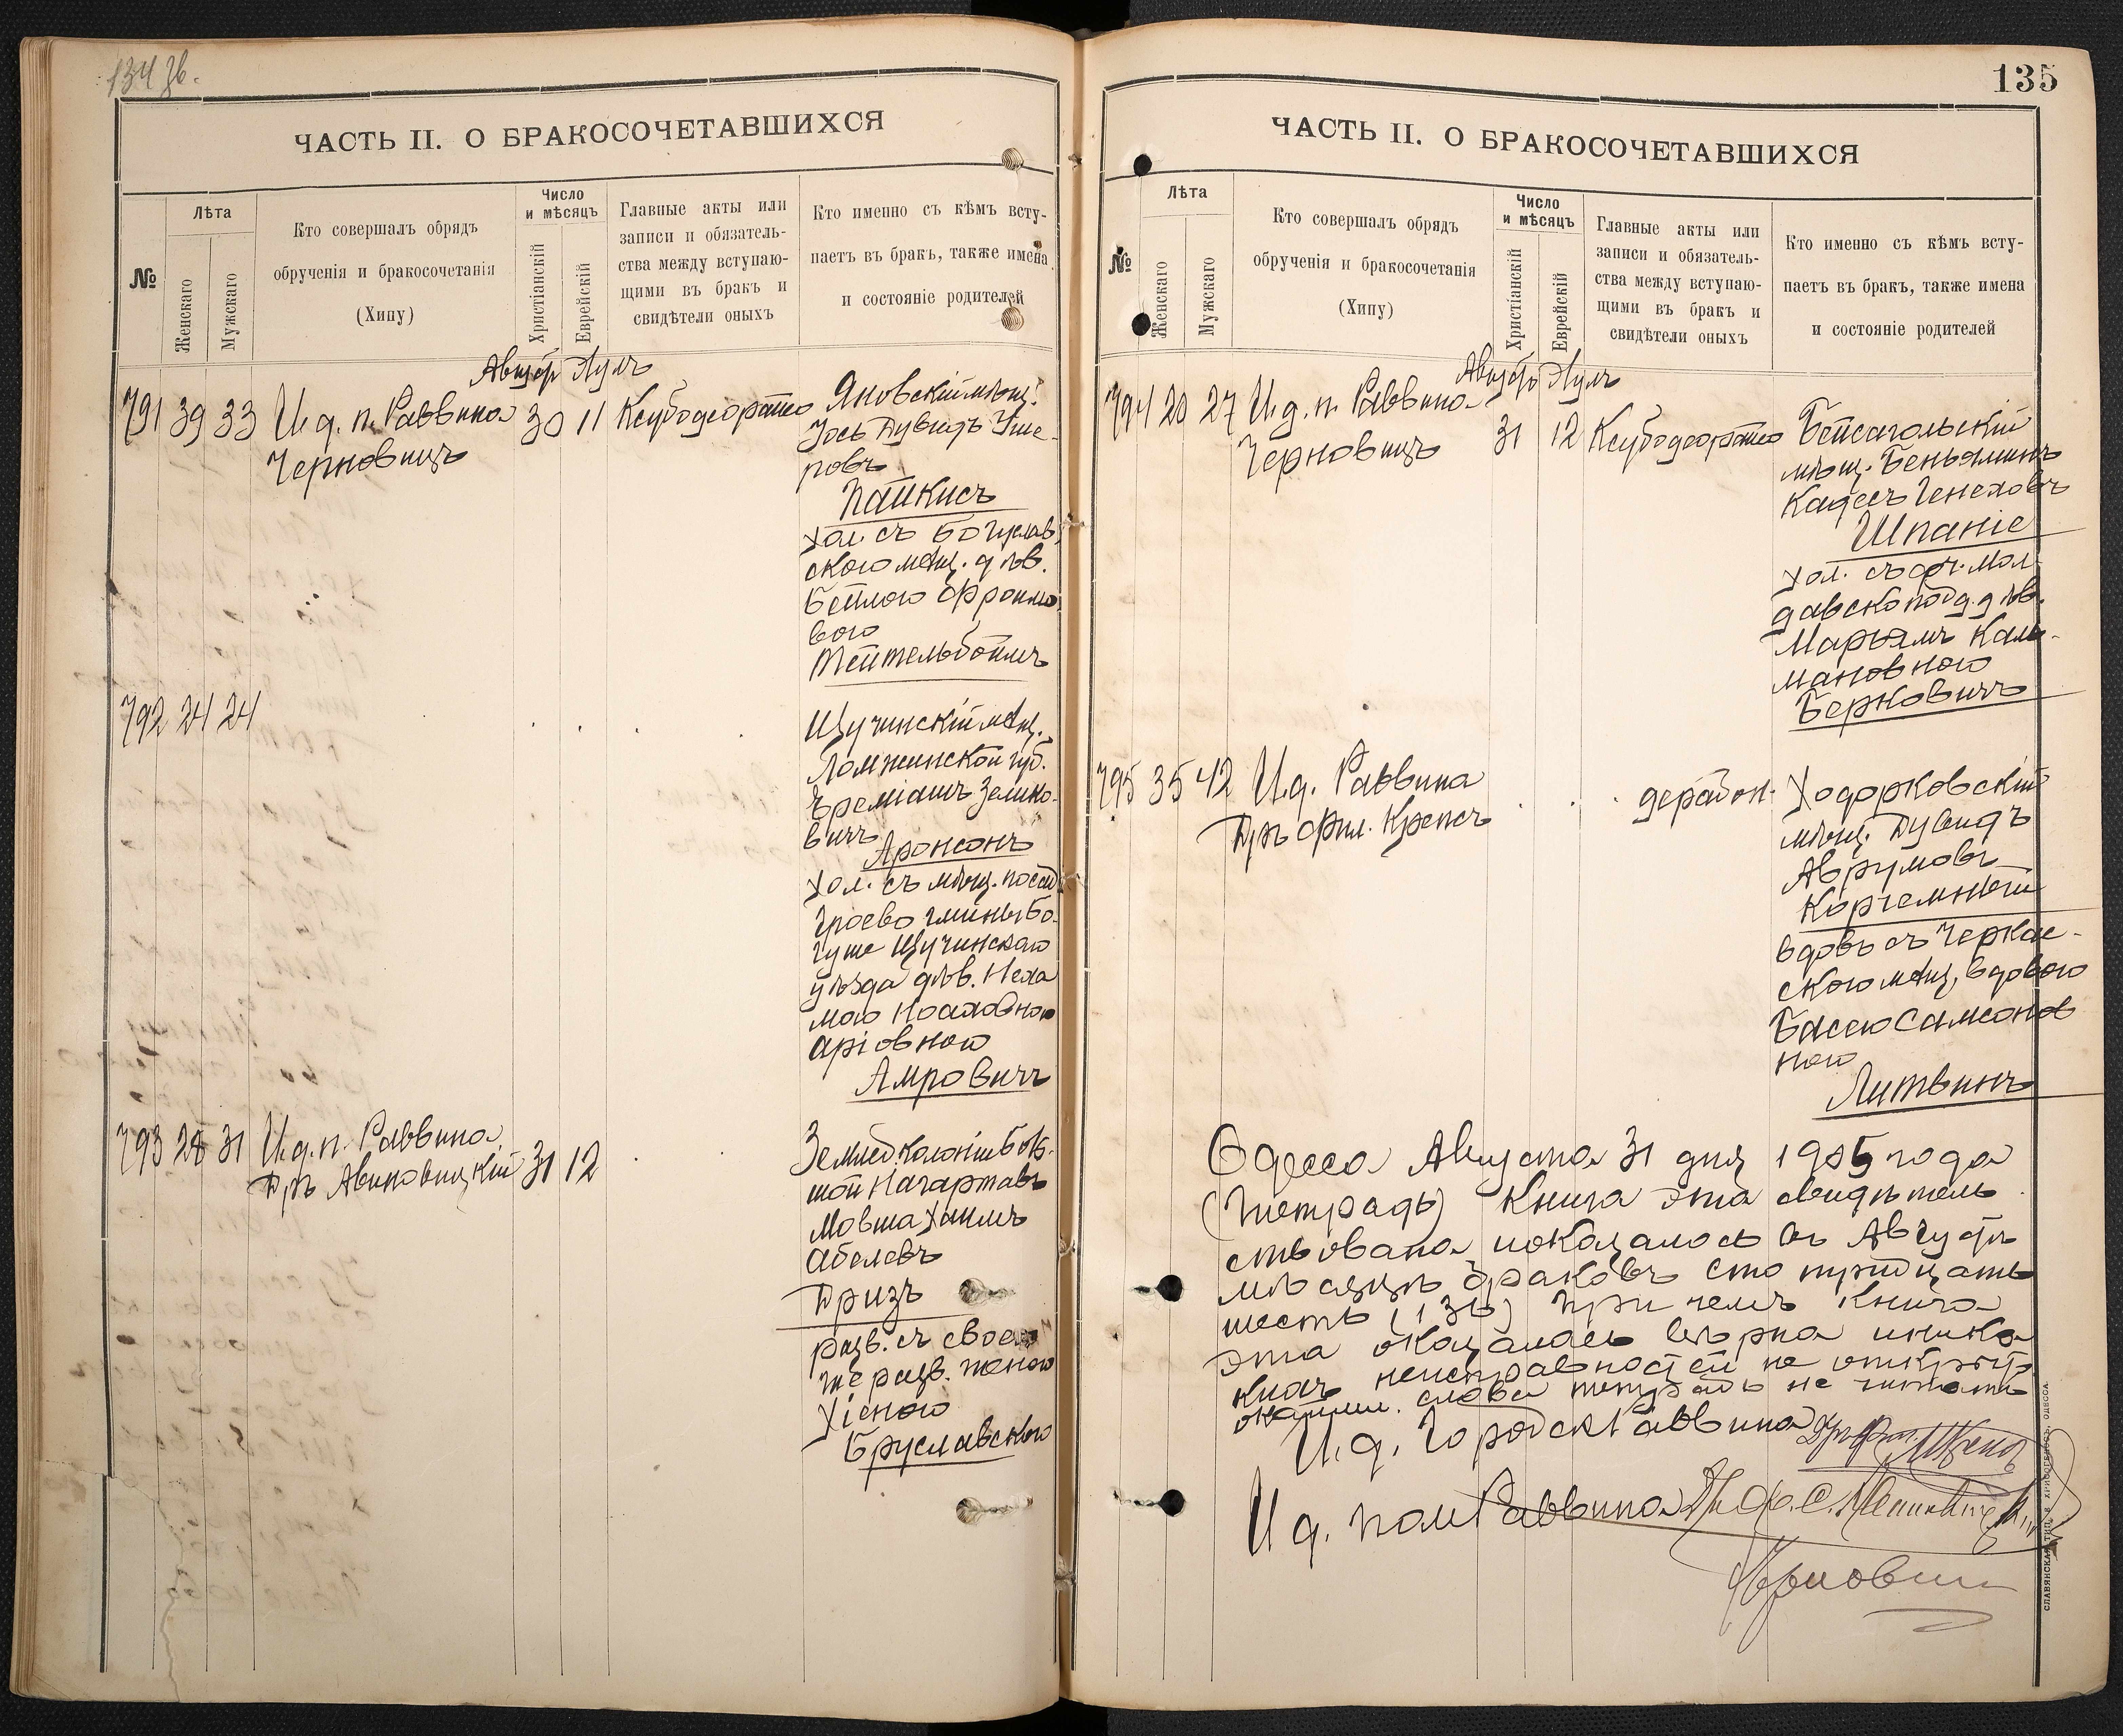 134 зв.
ЧАСТЬ II. О БРАКОСОЧЕТАВШИХСЯ
№
Лѣта
Женскаго
Мужскаго
Кто совершалъ обрядъ
обрученія и бракосочетанія
(Хипу)
Число
и мѣсяцъ
Христіанскій
Еврейскій
Главные акты или
записи и обязатель-
ства между вступаю-
щими въ бракъ и
свидѣтели оныхъ
Кто именно съ кѣмъ всту-
паетъ въ бракъ, также имена
и состояніе родителей
Августъ Элулъ
791 39 33 И. д. п. Раввина 30 11
Черновицъ
Яновскій мѣщ.
Іось Дувидъ Уше-
ровъ
Пайкисъ
хол. съ Богуслав
скою мѣщ. дѣв.
Бейлою Фроимо
вою
Тейтельбоймъ
792 24 24
Щучинскій мѣщ.
Ломжинской губ.
Еремiашъ Зелико-
вичъ
Аронсонъ
хол. съ мѣщ. посад
Граево гмины Бо-
гуше Щучинскаго
уѣзда дѣв. Неха
мою
аріовною
Амровичъ
793 28 31 И. д. п. Раввина
Дръ Авиновицкій 31 12
Землед. колоніи Боль-
шой Нагартавъ
Мовша Хаимъ
Абелевъ
Призъ
разв. съ своею
же разв. женою
Хіеною
Бруславскою
135
ЧАСТЬ II. О БРАКОСОЧЕТАВШИХСЯ
№
Лѣта
Женскаго
Мужскаго
Кто совершалъ обрядъ
обрученія и бракосочетанія
(Хипу)
Число
и мѣсяцъ
Христіанскій
Еврейскій
Главные акты или
записи и обязатель-
ства между вступаю-
щими въ бракъ и
свидѣтели оныхъ
Кто именно съ кѣмъ всту-
паетъ въ бракъ, также имена
и состояніе родителей
Августъ Элулъ
794 20 27 И. д. п. Раввина
Черновицъ 31 12
Бейсагольскій
мѣщ. Беньяминъ
Кадесъ Генеховъ
Шпаніе
хол. съ Мол-
давско под. дѣв.
Марьямъ Каль-
мановною
Берковичъ
795 35 42 И. д. Раввина
Дръ Фил. Крепсъ
Ходорковскій
мѣщ. Дувидъ
Аврумовъ
Корчемный
вдовъ съ Черкас-
скою мѣщ. вдовою
Басею Самсонов
ною
Литвинъ
Одесса Августа 31 дня 1905 года
(Тетрадь) Книга эта свидѣтель
ствована и оказалось въ Августѣ
мѣсяцѣ браковъ сто тридцать
шесть (136) при чемъ книга
эта оказалась вѣрна и ника
кихъ неисправностей не открыто
слова тетрадь не читать
И. д. Городск Раввина Дръ Фил. Крепсъ
И д. пом Раввина
Черновицъ
СЛАВЯНСКАЯ ТИП. ОДЕССА